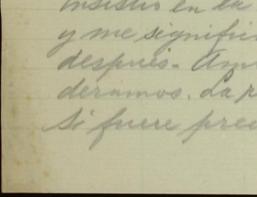 insistir en la
y me signifi
después. Am
deramos. La p
Si fuere prec